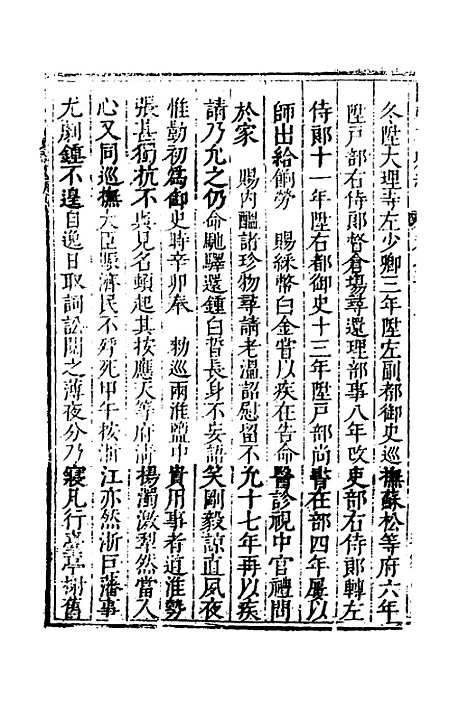 冬陞大理寺左少卿三年陞左副都御史巡撫蘇松等府六年
陞戶部右侍郞督倉場尋還理部事八年改吏部右侍郞轉左
侍郞十一年陞右都御史十三年陞戶部尚書在部四年屢以
師出給餉勞 賜綵幣白金嘗以疾在告命醫診視中官禮問
於家 賜內醞諸珍物尋請老溫詔慰留不允十七年再以疾
請乃允之仍命馳驛還鍾白晳長身不妄語笑剛毅諒直夙夜
惟勤初爲御史時辛卯奉 勑巡兩淮鹽中貴用事者道淮勢
張甚獨抗不與見名頓起其按應天等府淸揚濁激犁然當人
心又同巡撫大臣賑濟民不殍死甲午按浙江亦然浙巨藩事
尤劇鍾不遑自逸日取詞訟閱之薄夜分乃寢凡行臺亭榭舊